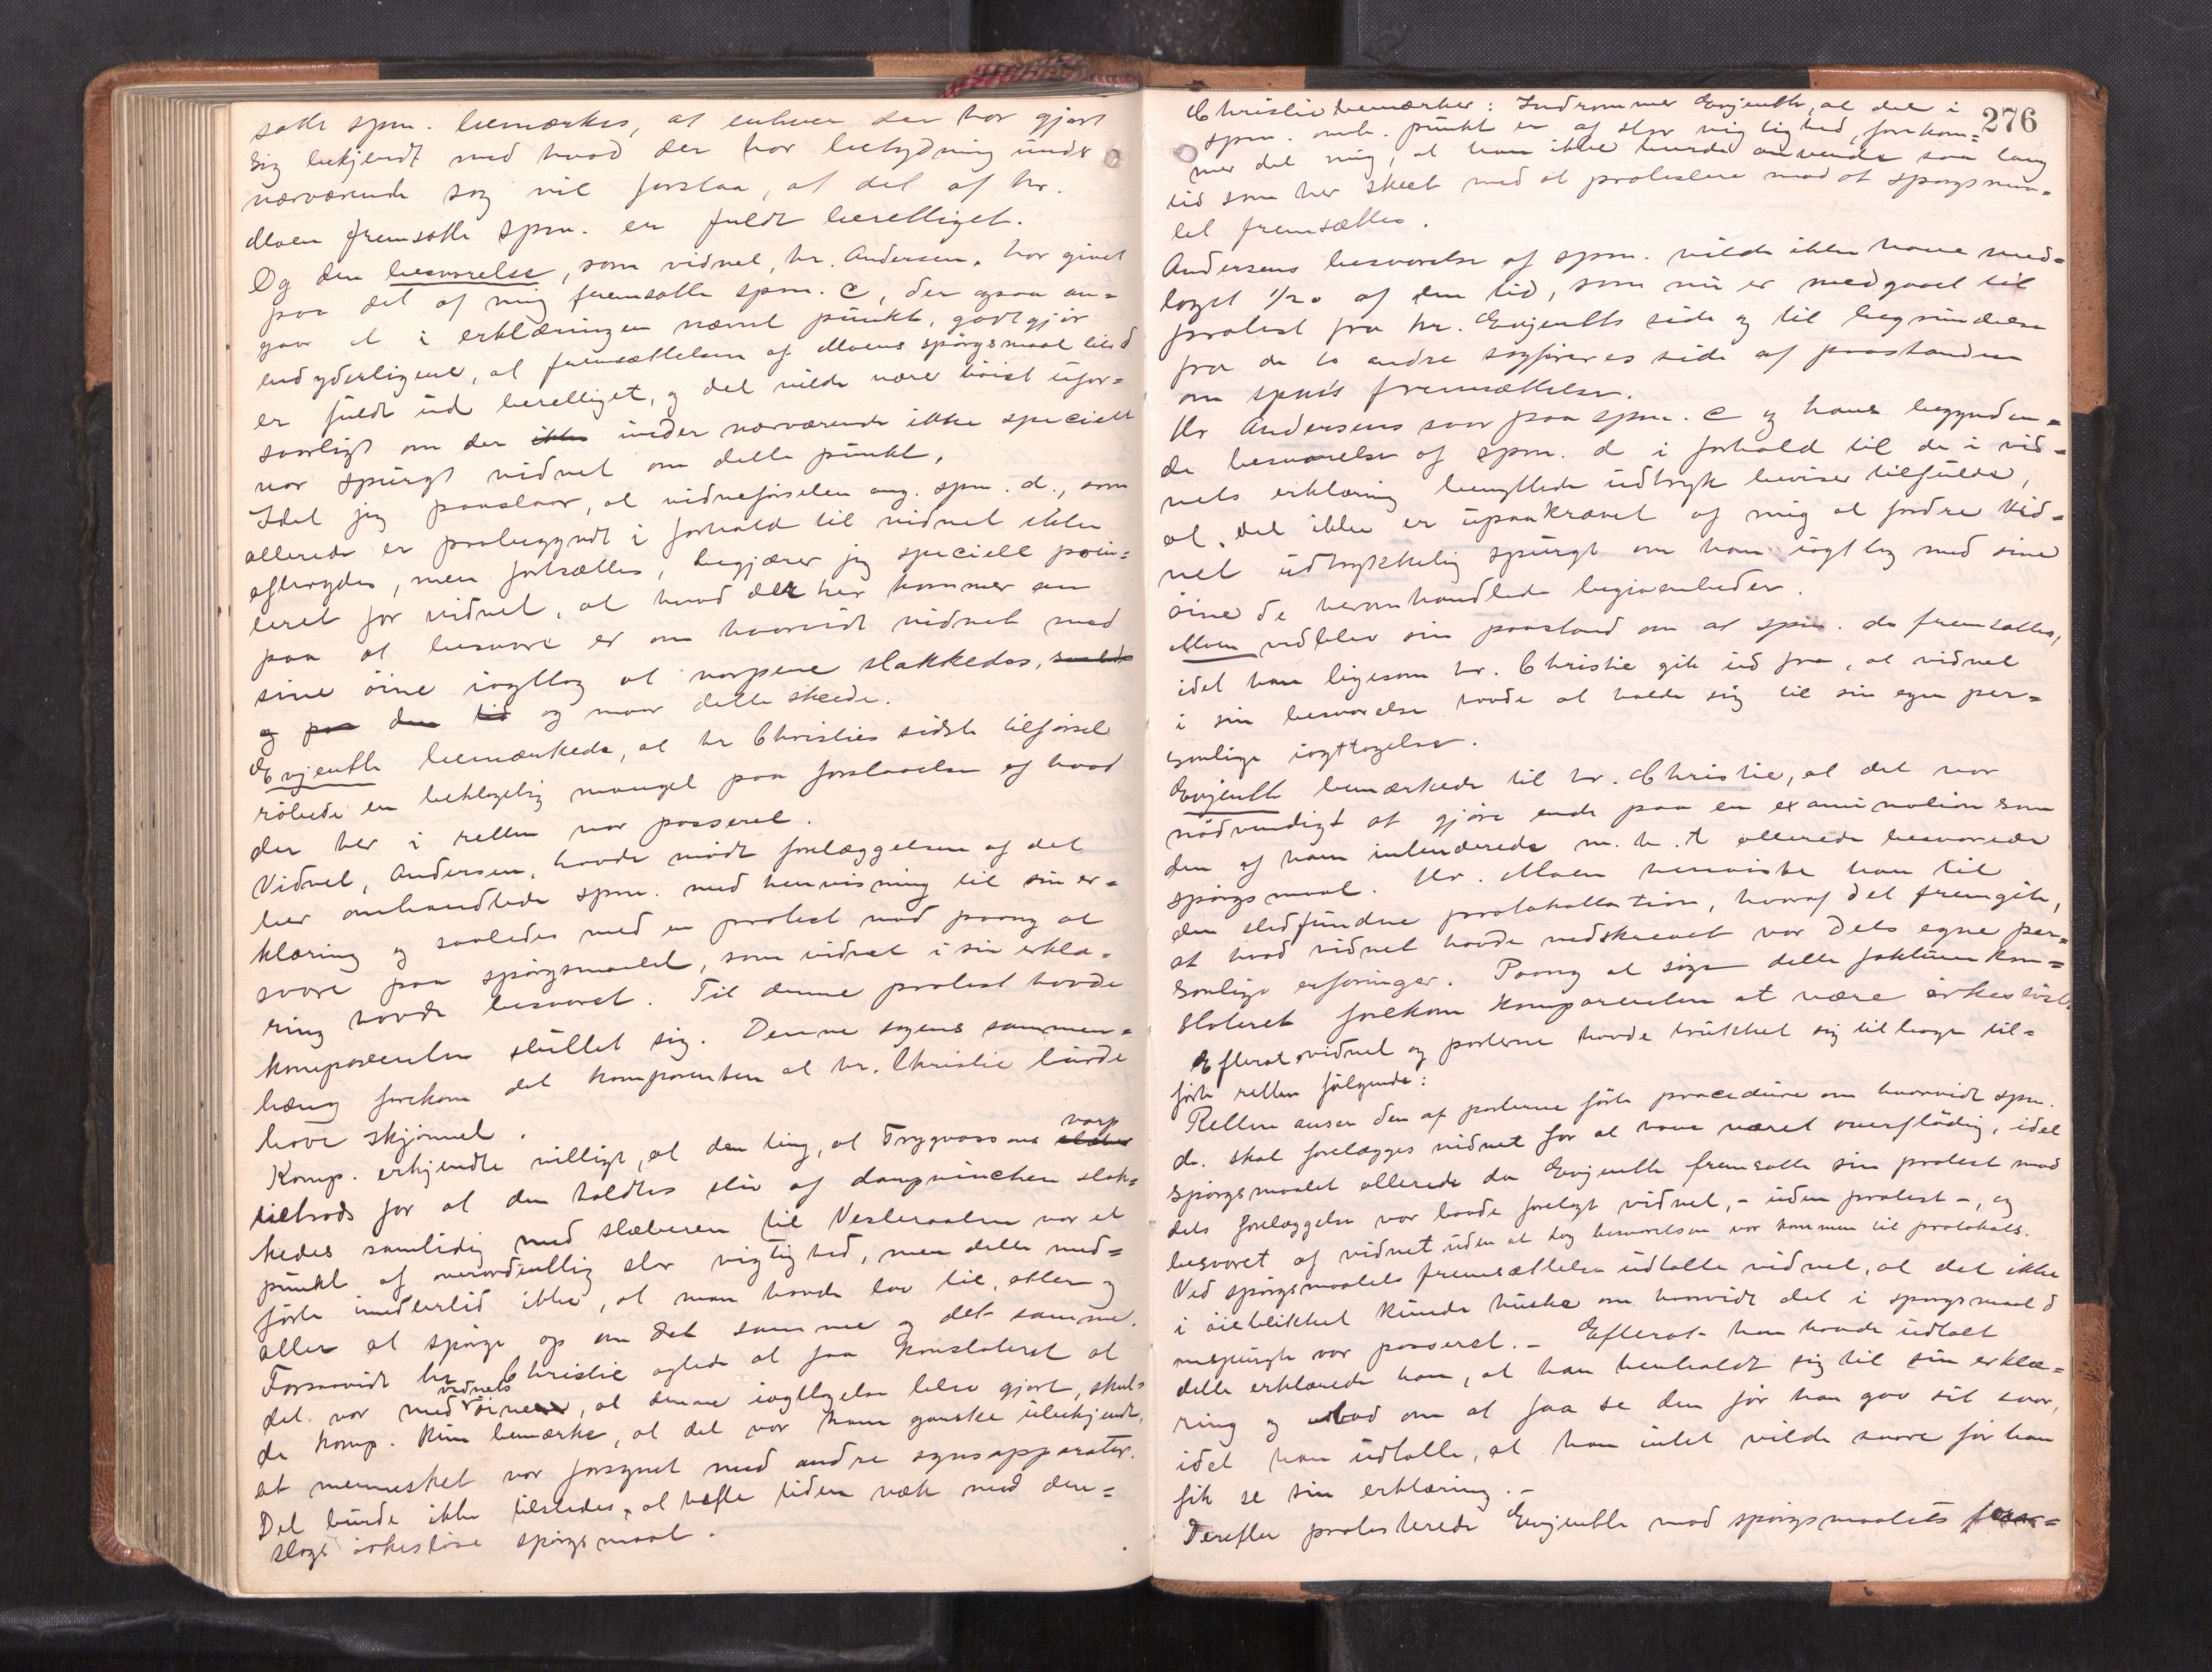 satte spm. bemærkes, at enhver der har gjort
sig bekjendt med hvad der har betydning under
nærværende sag vil forstaa, at det af hr.
Moen fremsatte spm. er fuldt berettiget.
Og den besvarelse, som vidnet, hr. Andersen, har givet
paa det af mig fremsatte spm. c, der ogsaa an=
gaar et i erklæringen nævnt punkt, godtgjør
endyderligere, at fremsættelsen af Moens spørgsmaal lit. d
er fuldt ud berettiget, og det vilde være høist ufor=
svarligt om der ikke under nærværende ikke specielt
var spurgt vidnet om dette punkt.
Idet jeg paastaar, at vidneførselen ang. spm. d., som
allerede er paabegyndt i forhold til vidnet ikke
afbrydes, men fortsættes, begjærer jeg specielt poin=
teret for vidnet, at hvad det her kommer an
paa at besvare er om hvorvidt vidnet med
sine øine iagttog at varpene slakkedes,
og paa den tid og naar dette skede.
Evjenth bemærkede, at hr Christies sidste tilførsel
røbede en beklagelig mangel paa forstaaelse af hvad
der her i retten var passeret.
Vidnet, Andersen, havde mødt forelæggelsen af det
her omhandlede spm. med henvisning til sin er=
klæring og saaledes med en protest mod paany at
svare paa spørgsmaalet, som vidnet i sin erklæ=
ring havde besvaret. Til denne protest havde
komparenten sluttet sig. Denne sagens sammen=
hæng forekom det komparenten at hr. Christie burde
have skjønnet.
Komp. erkjendte villigt, at den ting, at Trygvasons varp
tiltrods for at den holdtes stiv af dampvinchen slak=
kedes samtidig med slæberen til Vesteraalen var et
punkt af overordentlig stor vigtighed, men dette med=
førte imidlertid ikke, at man havde lov til, atter og
atter at spørge op om det samme og det samme.
Forsaavidt hr Christie agtede at faa konstateret at
det var med vidnets øine, at denne iagttagelse blev gjort, skul=
de komp. kun bemærke, at det var ham ganske ubekjendt,
at mennesket var forsynet med andre synsapparater.
Det burde ikke tilstedes, at hefte tiden væk med den=
slags ørkesløse spørgsmaal.
276
Christie bemærker: Indrømmer Evjenth, at det i
spm. omh. punkt er af stor vigtighed, forekom=
mer det mig, at han ikke burde anvende saa lang
tid som her skeet med at protestere mod at spørgsmaa=
let fremsættes.
Andersens besvarelse af spm. vilde ikke have med=
taget 1/20 af den tid, som nu er medgaaet til
protest fra hr. Evjenths side og til begrundelse
fra de to andre sagføreres side af paastanden
om spm's fremsættelse.
Hr Andersens svar paa spm. c og hans begynden=
de besvarelse af spm. d i forhold til de i vid=
nets erklæring benyttede udtryk beviser tilfulde,
at det ikke er upaakrævet af mig at fordre vid=
net udtrykkelig spurgt om han iagttog med sine
øine de heromhandlede begivenheder.
Moen vedblev sin paastand om at spm. d. fremsattes,
idet han ligesom hr. Christie gik ud fra, at vidnet
i sin besvarelse havde at holde sig til sin egen per=
sonlige iagttagelse.
Evjenth bemærkede til hr. Christie, at det var
nødvendigt at gjøre ende paa en examination som
den af ham intenderede m. h. t. allerede besvarede
spørgsmaal. Hr. Moen henviste han til
den stedfundne protokollation, hvoraf det fremgik,
at hvad vidnet havde nedskrevet var dets egne per=
sonlige erfaringer. Paany at søge dette faktum kon=
stateret forekom komparenten at være ørkesløst.
Efterat vidnet og parterne havde trukket sig tilbage til=
førte retten følgende:
Retten anser den af parterne førte procedure om hvorvidt spm.
d. skal forelægges vidnet for at have været overflødig, idet
spørgsmaalet allerede da Evjenth fremsatte sin protest mod
dets forelæggelse var baade forelagt vidnet, - uden protest -, og
besvaret af vidnet uden at dog besvarelsen var kommen til protokols.
Ved spørgsmaalets fremsættelse udtalte vidnet, at det ikke
i øieblikket kunde huske om hvorvidt det i spørgsmaal d
omspurgte var passeret. - Efterat han havde udtalt
dette erklærede han, at han henholdt sig til sin erklæ=
ring og bad om at faa se den før han gav sit svar,
idet han udtalte, at han intet vilde svare før han
fik se sin erklæring. -
Derefter protesterede Evjenth mod spørgsmaalets